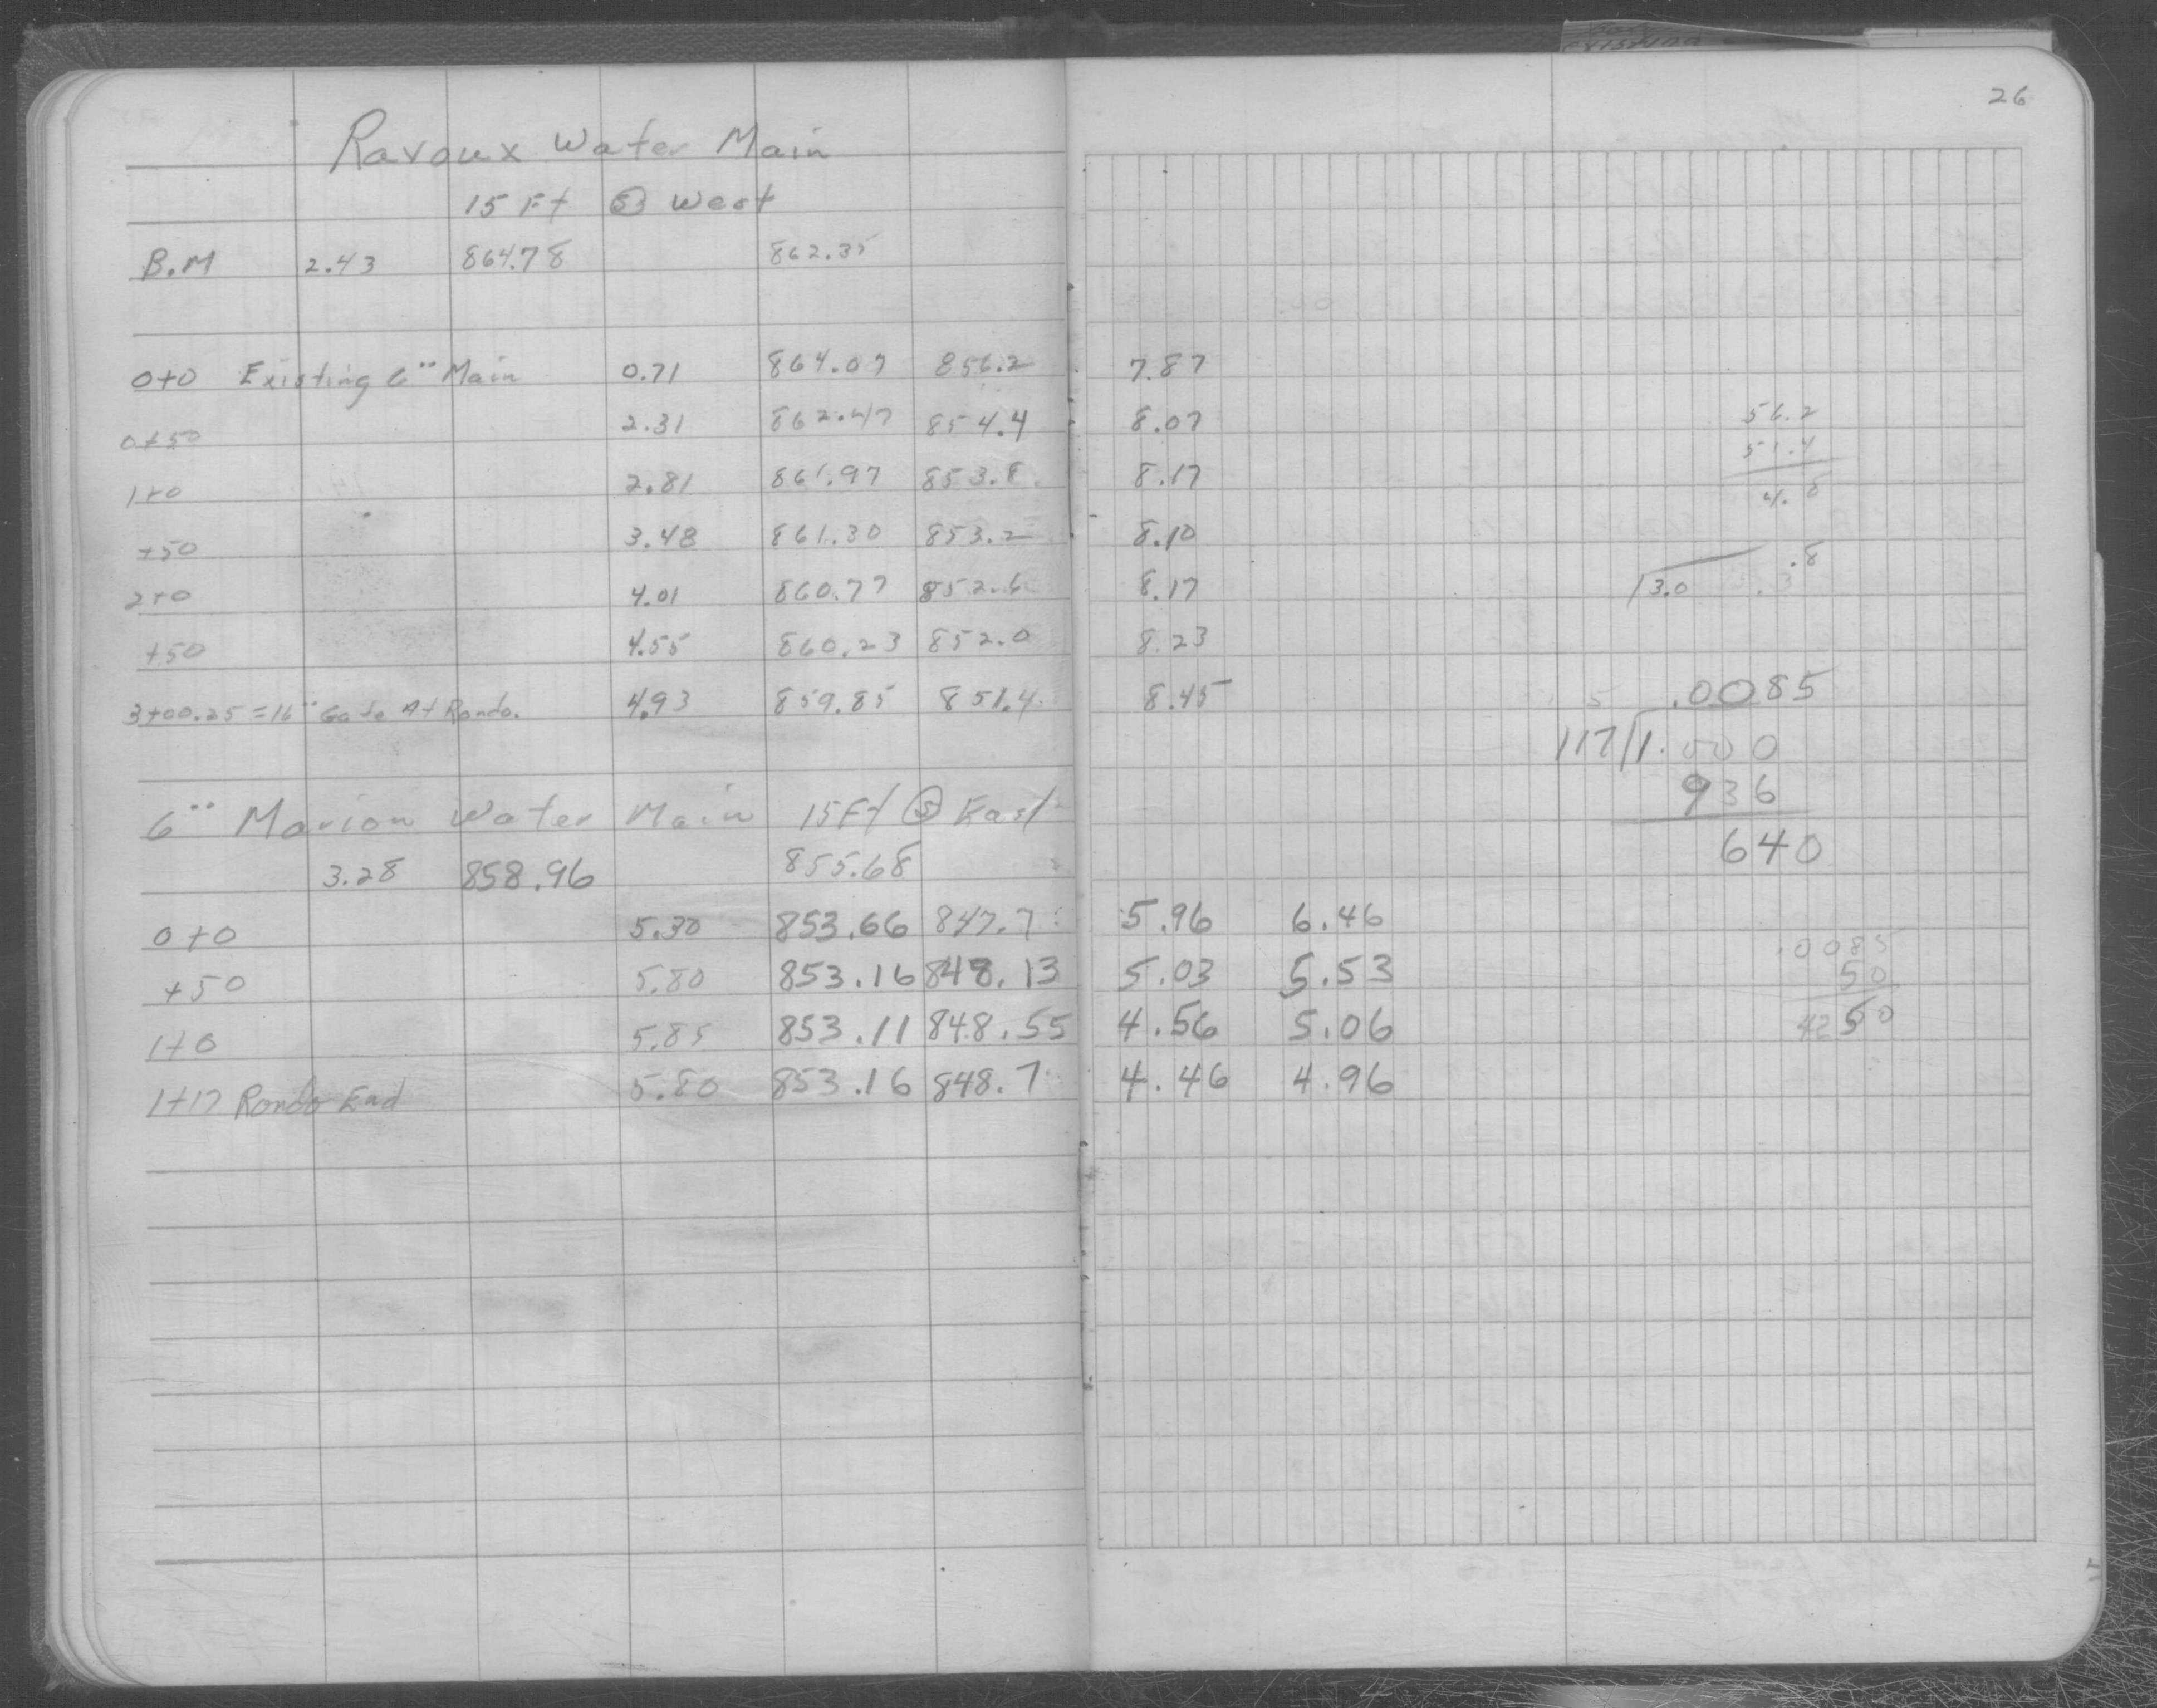 26
Ravoux Water Main
15 Ft @ West
B.M 2.43 864.78 862.35
0+0 Existing 6" Main 0.71 864.07 856.2 7.87
0+50 2.31 862.47 854.4 8.07
1+0 2.81 861.97 853.8 8.17
+50 3.48 861.30 853.2 8.10
2+0 4.01 860.77 852.6 8.17
+50 4.55 860.23 852.0 8.23
3+00.25 = 16" Gate At Rondo. 4.93 859.85 851.4 8.45
6" Marion Water Main 15 Ft @ East
3.28 858.96 855.68
0+0 5.30 853.66 847.7 5.96 6.46
+50 5.80 853.16 848.13 5.03 5.53
1+0 5.85 853.11 848.55 4.56 5.06
1+17 Rondo End 5.80 853.16 848.7 4.46 4.96
56.2
51.4
4.8
.8
3.0
.0085
117/1.000
936
640
.0085
50
4250